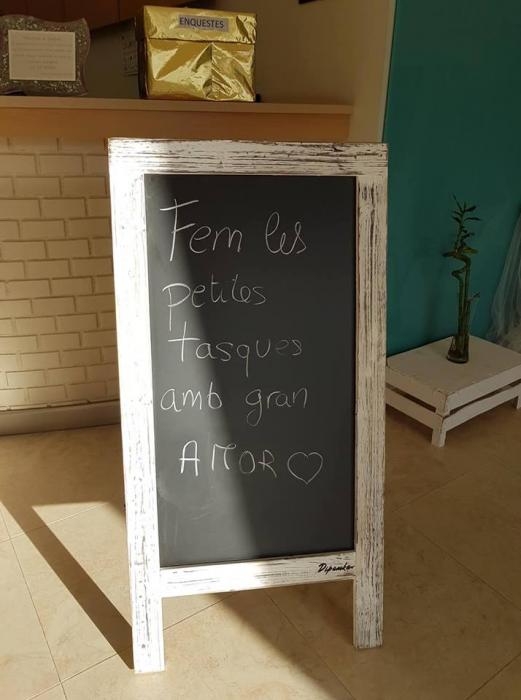 ENQUESTES
Fem les
petites
tasques
amb gran
AMOR